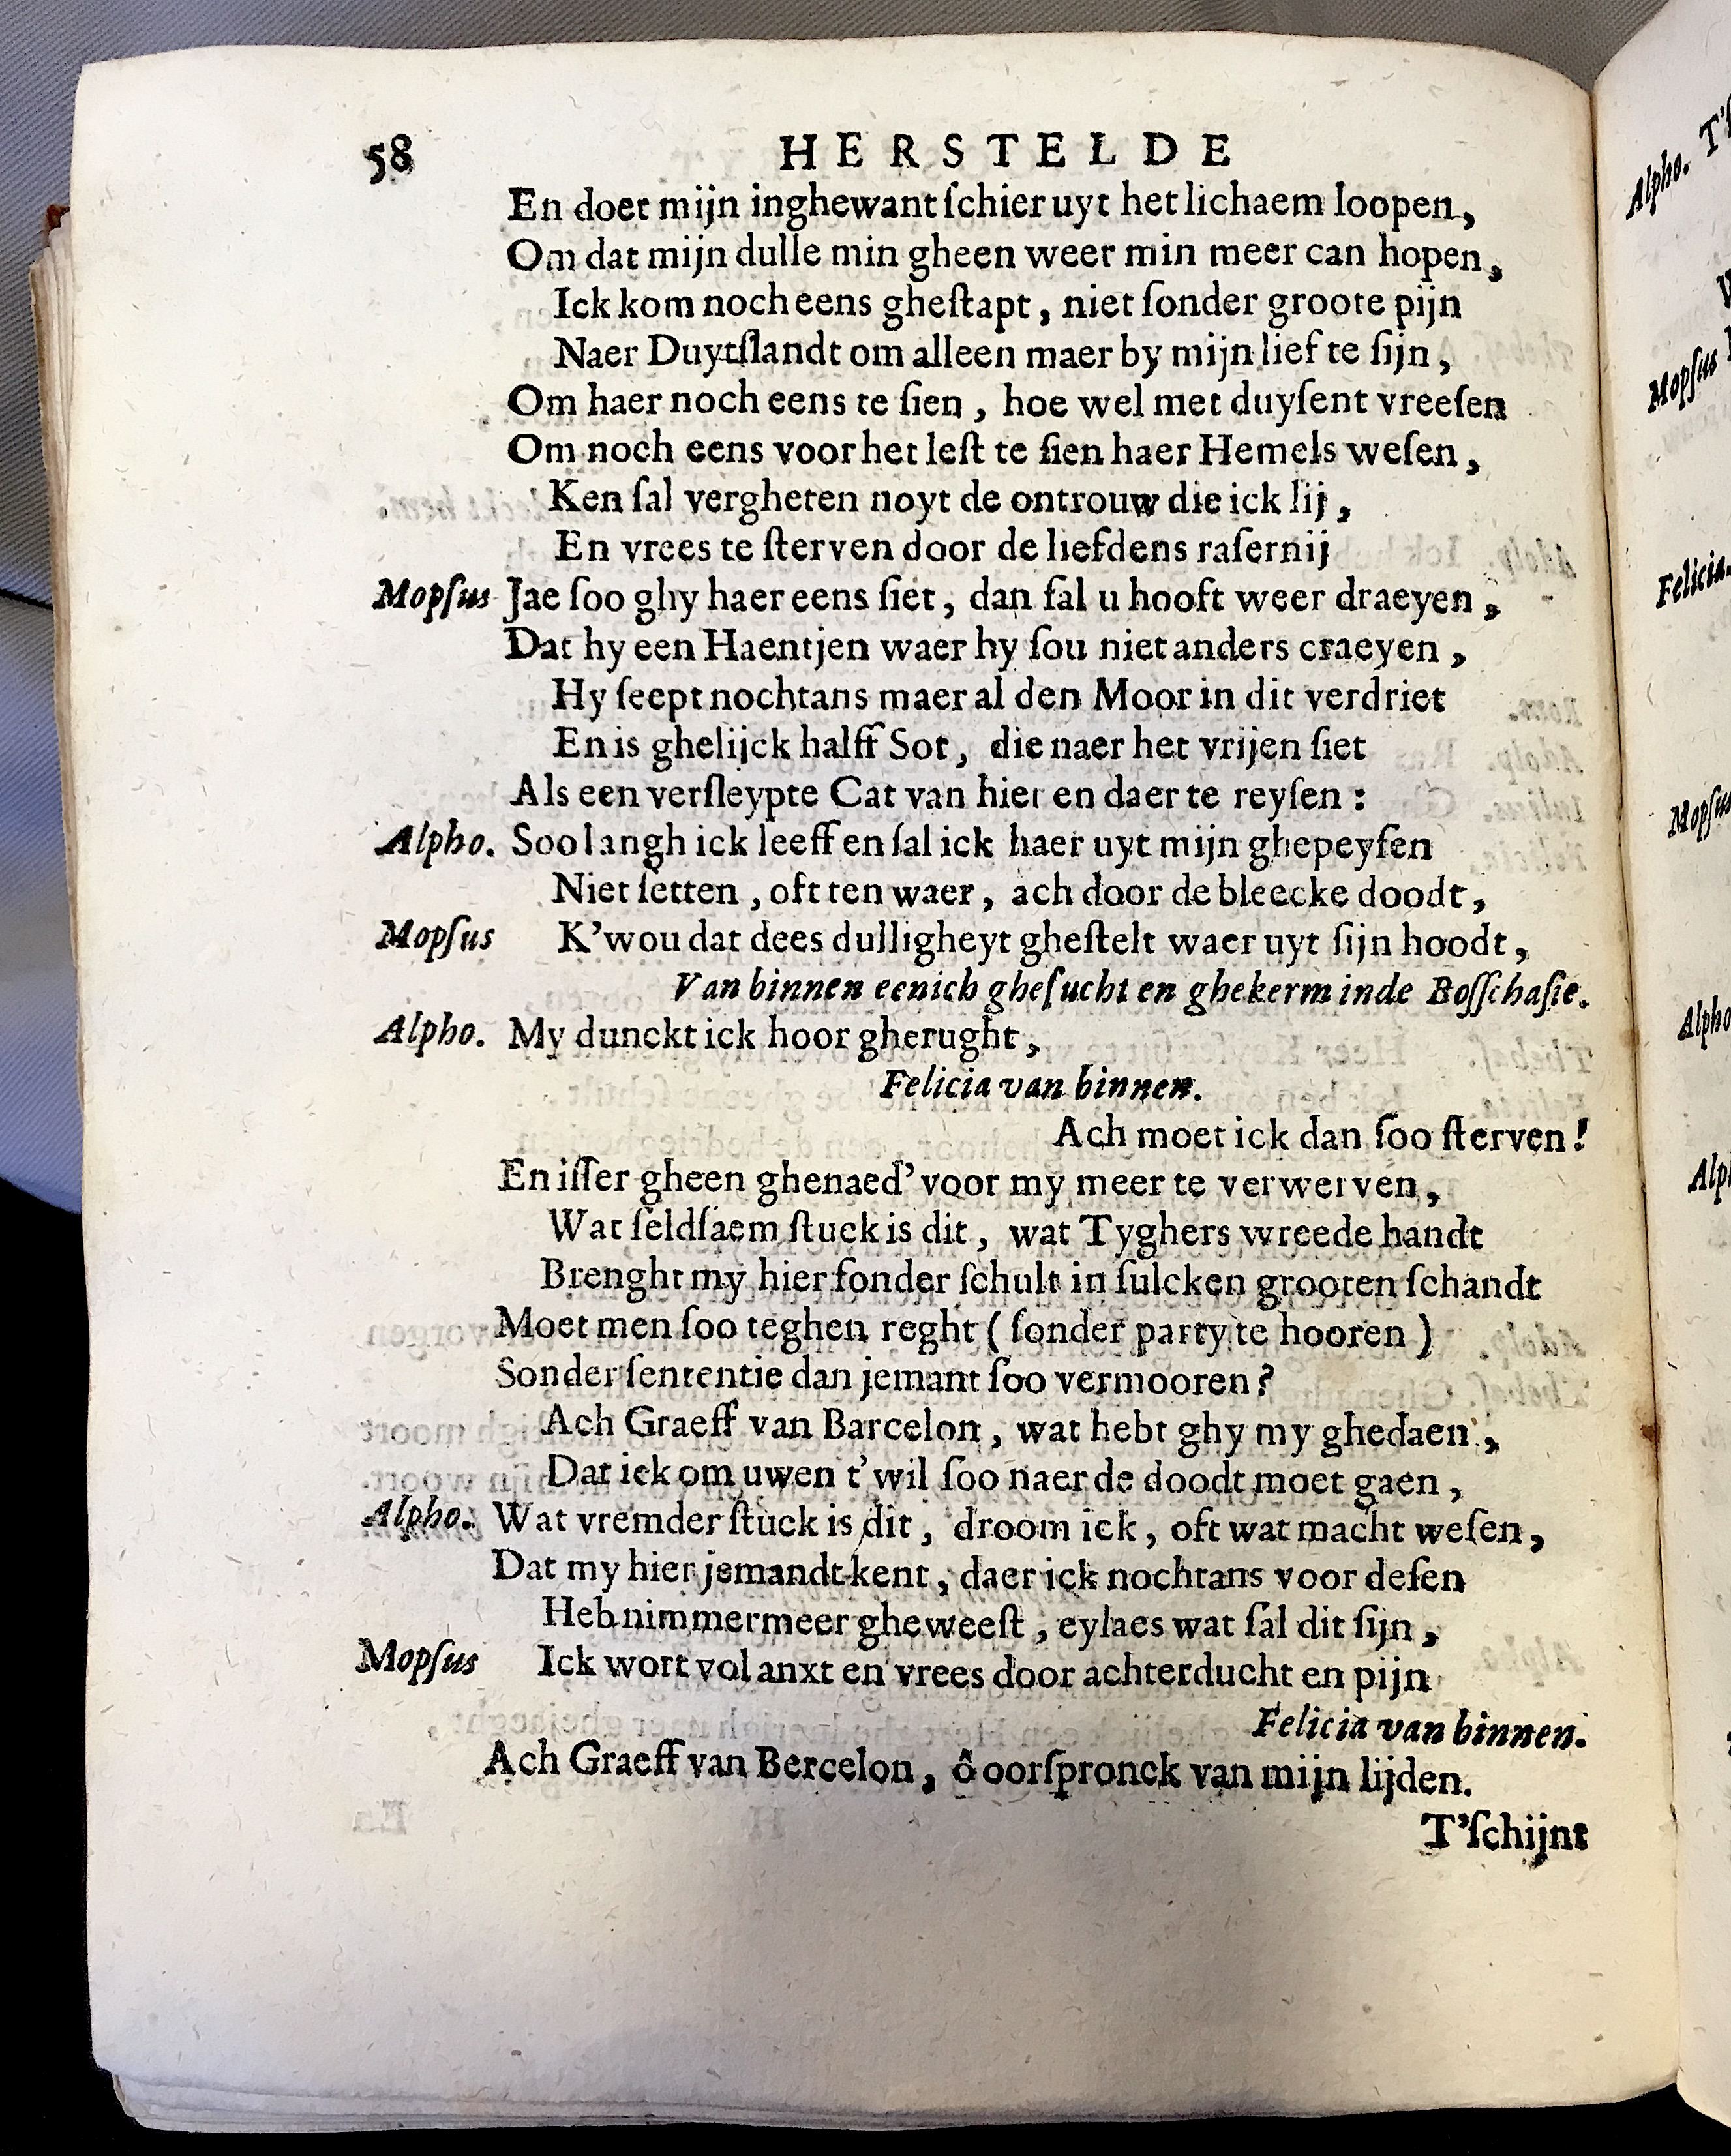 58 HERSTELDE
En doet mijn inghewant ſchier uyt het lichaem loopen,
Om dat mijn dulle min gheen weer min meer can hopen,
Ick kom noch eens gheſtapt, niet ſonder groote pijn
Naer Duytſlandt om alleen maer by mijn lief te ſijn,
Om haer noch eens te ſien, hoe wel met duyſent vreeſen
Om noch eens voor het leſt te ſien haer Hemels weſen,
Ken ſal vergheten noyt de ontrouw die ick lij,
En vrees te ſterven door de liefdens raſernij
Mopſus Jae ſoo ghy haer eens ſiet, dan ſal u hooft weer draeyen,
Dat hy een Haentjen waer hy ſou niet anders craeyen,
Hy ſeept nochtans maer al den Moor in dit verdriet
En is ghelijck halff Sot, die naer het vrijen ſiet
Als een verſleypte Cat van hier en daer te reyſen:
Alpho. Soo langh ick leeff en ſal ick haer uyt mijn ghepeyſen
Niet ſetten, oft ten waer, ach door de bleecke doodt,
Mopſus K'wou dat dees dulligheyt gheſtelt waer uyt ſijn hoodt,
Van binnen eenich gheſucht en ghekerm inde Boſſchaſie.
Alpho. My dunckt ick hoor gherught,
Felicia van binnen.
Ach moet ick dan ſoo ſterven!
En iſſer gheen ghenaed' voor my meer te verwerven,
Wat ſeldſaem ſtuck is dit, wat Tyghers wreede handt
Brenght my hier ſonder ſchult in ſulcken grooten ſchandt
Moet men ſoo teghen reght (ſonder party te hooren)
Sonder ſententie dan jemant ſoo vermooren?
Ach Graeff van Barcelon, wat hebt ghy my ghedaen,
Dat ick om uwen t'wil ſoo naer de doodt moet gaen,
Alpho. Wat vremder ſtuck is dit, droom ick, oft wat macht weſen,
Dat my hier jemandt kent, daer ick nochtans voor deſen
Heb nimmermeer gheweeſt, eylaes wat ſal dit ſijn,
Mopſus Ick wort vol anxt en vrees door achterducht en pijn
Felicia van binnen.
Ach Graeff van Bercelon, ô oorſpronck van mijn lijden.
T'ſchijnt